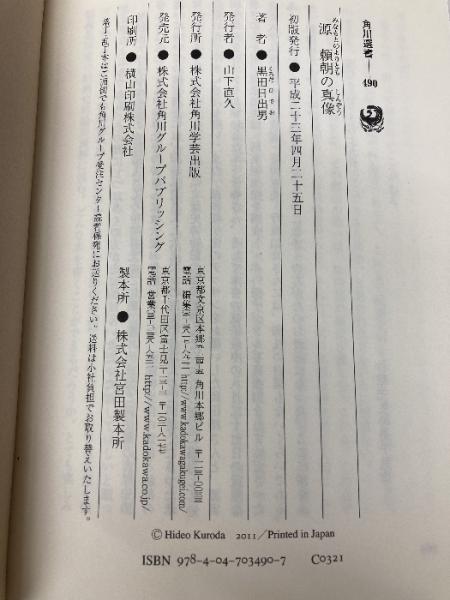 角川選書 490
源頼朝の真像
みなもとのよりとも しんぞう
初版発行●平成二十三年四月二十五日
著 者●黒田日出男
くろだ ひでお
発行者●山下直久
発行所●株式会社角川学芸出版
東京都文京区本郷 角川本郷ビル
電話 編集
http://www.kadokawagakugei.com/
発売元●株式会社角川グループパブリッシング
東京都千代田区富士見
電話 営業
http://www.kadokawa.co.jp/
印刷所●横山印刷株式会社
製本所●株式会社宮田製本所
落丁・乱丁本はご面倒でも角川グループ受注センター読者係宛にお送りください。送料は小社負担でお取り替えいたします。
© Hideo Kuroda 2011/Printed in Japan
ISBN 978-4-04-703490-7 C0321